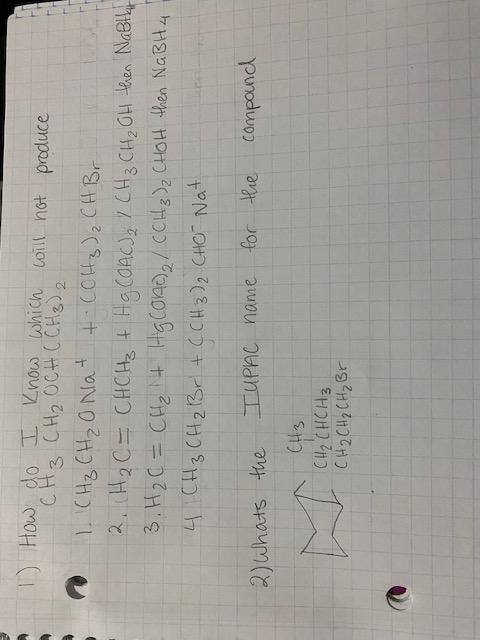 1) How do I Know which will not produce
CH3 CH2 OCH(CH3)2
1. CH3CH2ONa+ + (CH3)2 CHBr
2. H2C=CHCH3 + Hg(OAC)2 / CH3CH2OH then NaBH4
3. H2C=CH2 + Hg(OAC)2/(CH3)2 CHOH then NaBH4
4 CH3CH2Br + (CH3)2 CHO- Na+
2) Whats the IUPAC name for the compound
CH3
CH2CHCH3
CH2CH2CH2Br